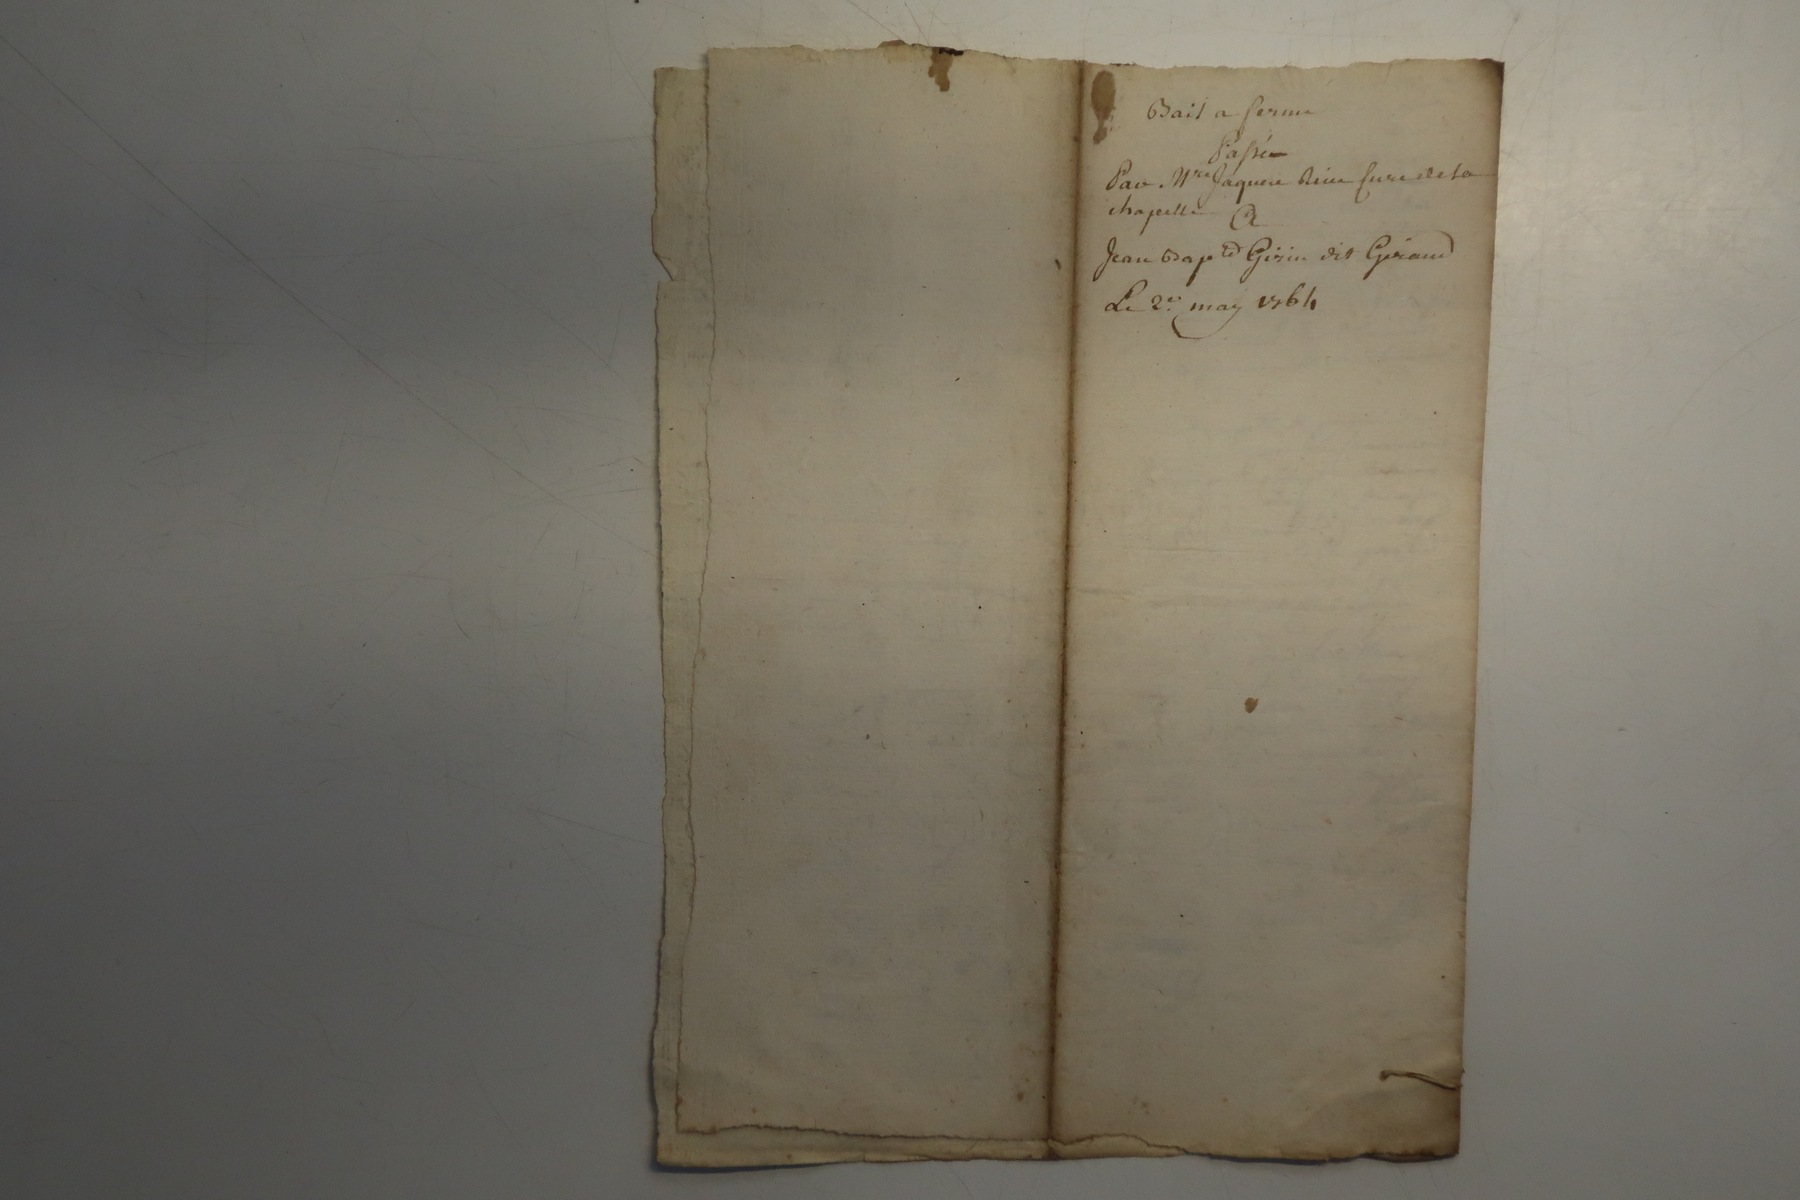 Bail a ferme
Passé
Par Mre Jaques curé de la
chapelle A
Jean Bapte Girin dit Giraud
Le 2e may 1764